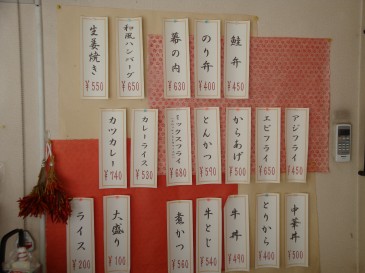 鮭弁
¥450
のり弁
¥400
幕の内
¥630
和風ハンバーグ
¥650
生姜焼き
¥550
アジフライ
¥450
エビフライ
¥650
からあげ
¥500
とんかつ
¥590
ミックスフライ
¥680
カレーライス
¥530
カツカレー
¥740
中華丼
¥500
とりから
¥400
牛丼
¥490
牛とじ
¥540
煮かつ
¥560
大盛り
¥100
ライス
¥200